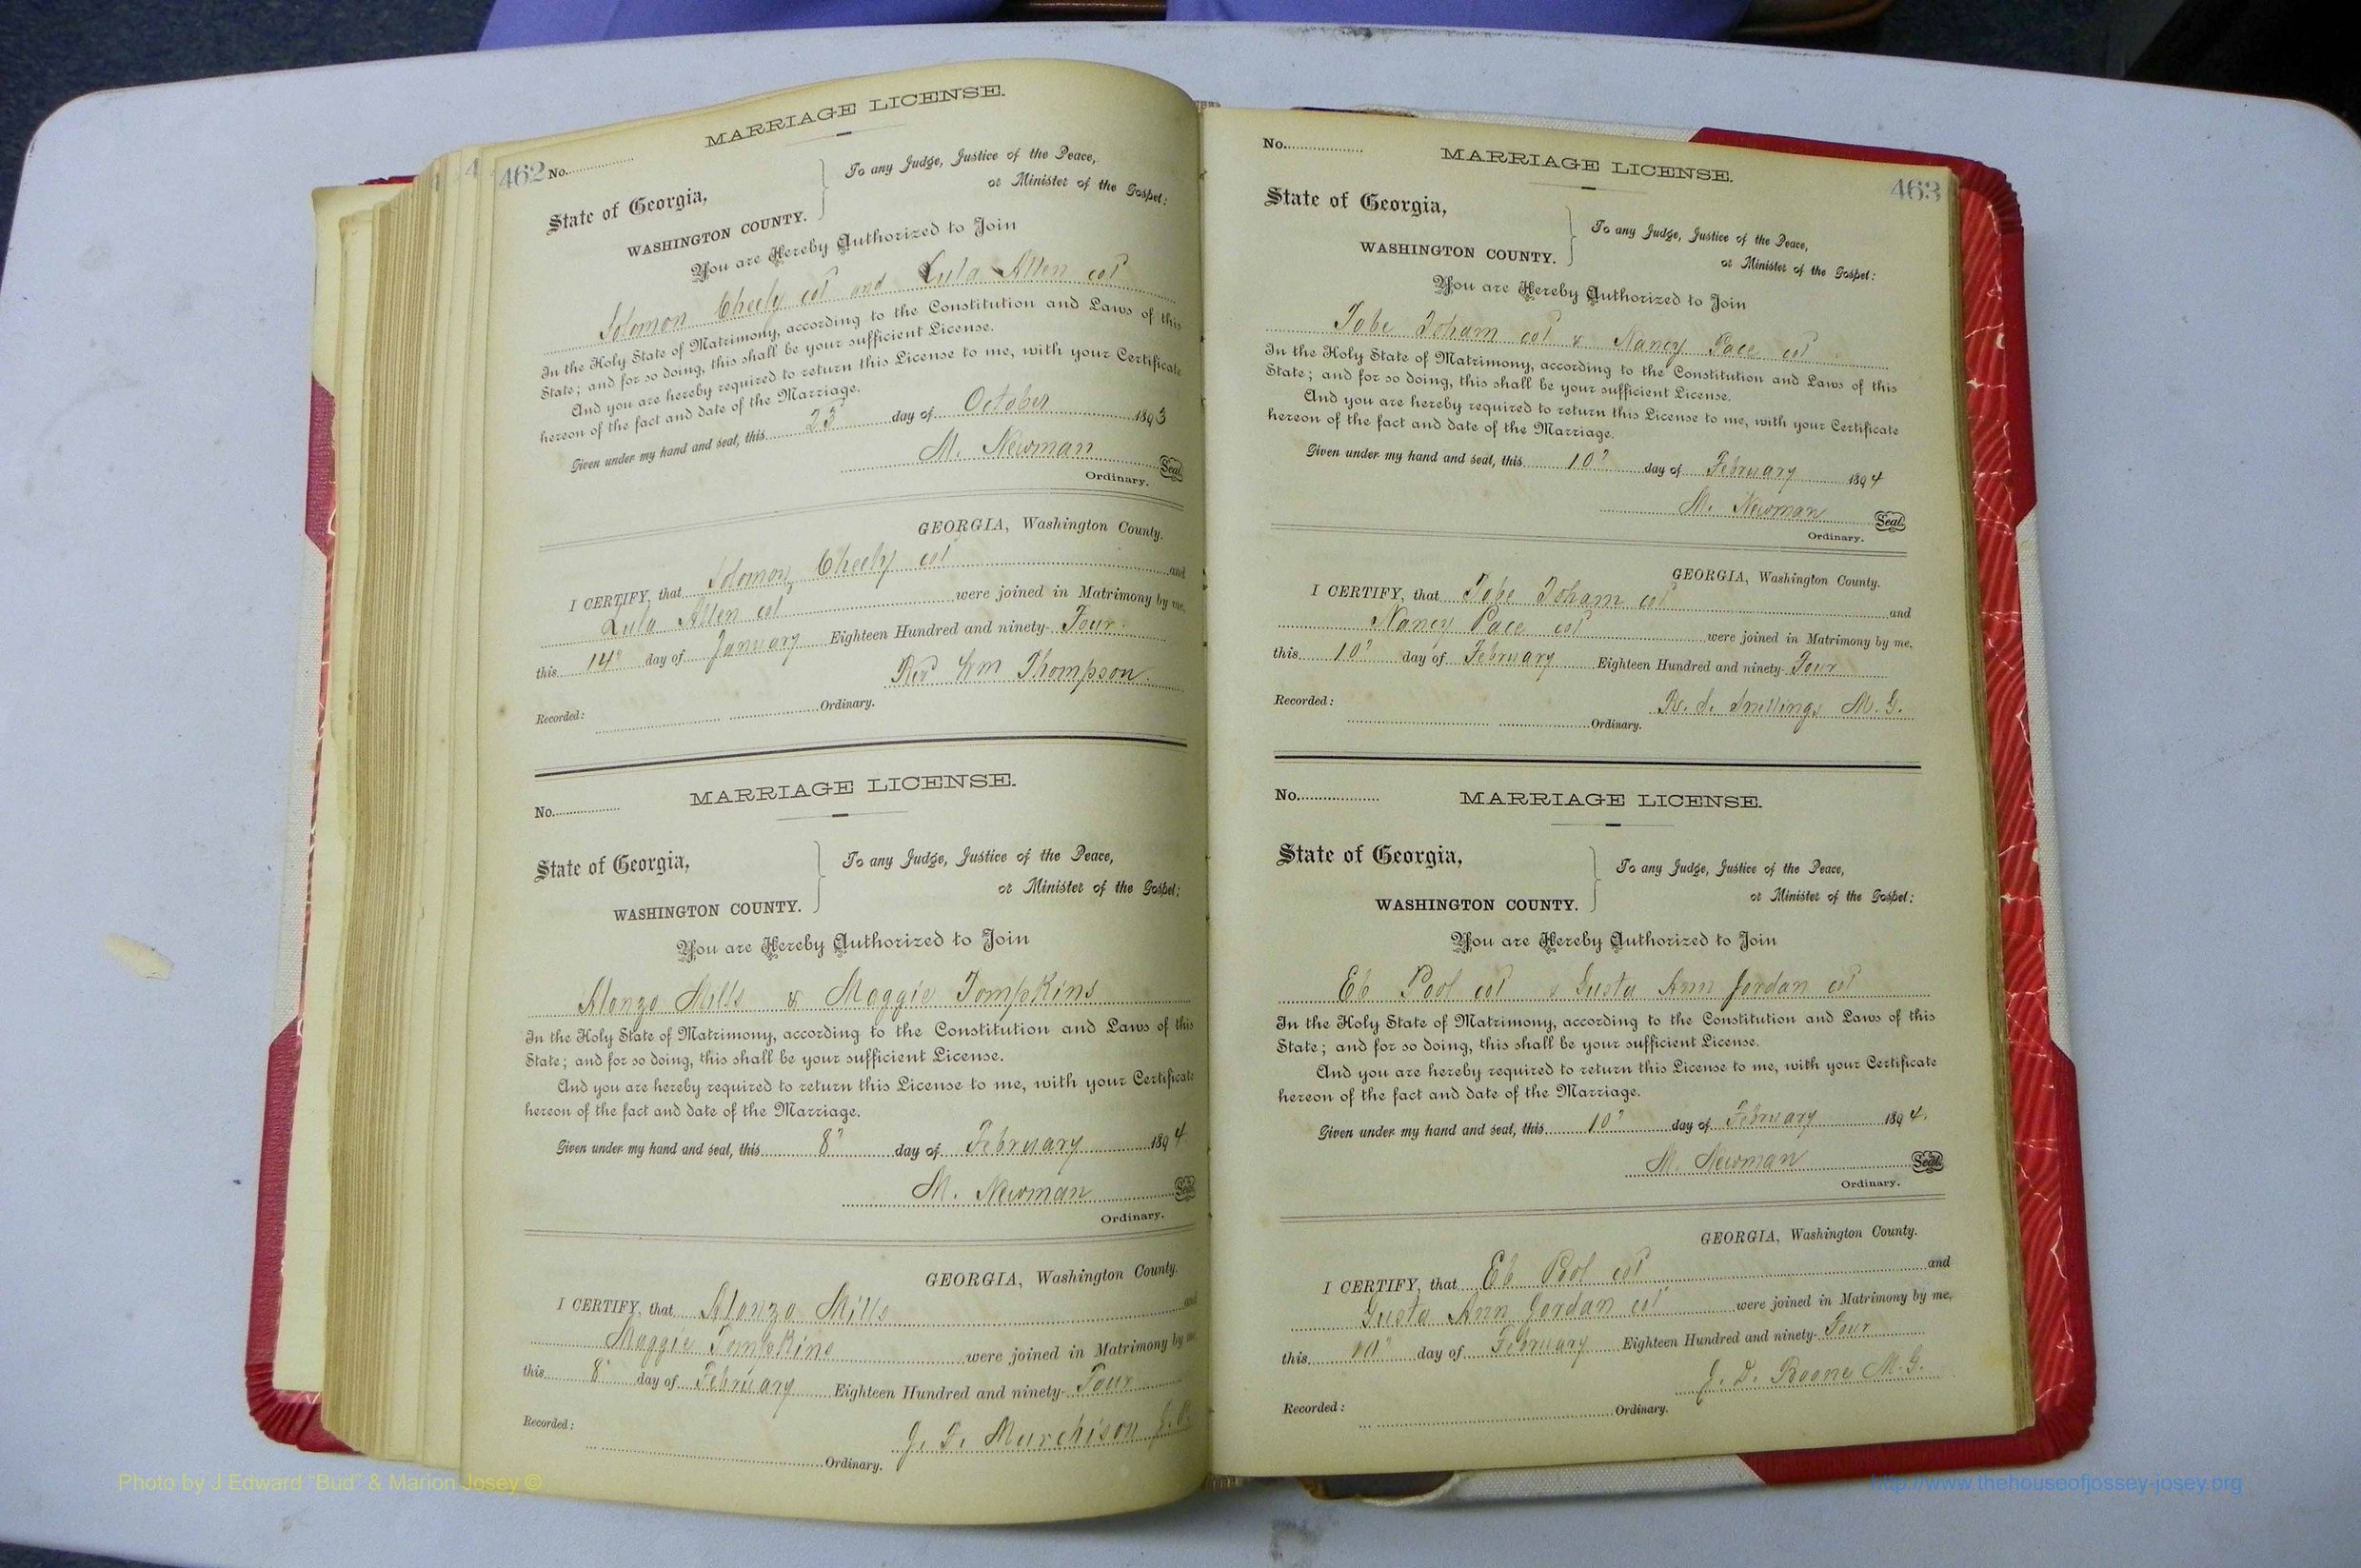 MARRIAGE LICENSE.
462 No.
State of Georgia,
WASHINGTON COUNTY.
To any Judge, Justice of the Peace,
or Minister of the Gospel:
You are Hereby Authorized to Join
Solomon Cheely col and Lula Allen col
In the Holy State of Matrimony, according to the Constitution and Laws of this
State; and for so doing, this shall be your sufficient License.
And you are hereby required to return this License to me, with your Certificate
hereon of the fact and date of the Marriage.
Given under my hand and seal, this 23 day of October 1893
M. Newman Seal
Ordinary.
GEORGIA, Washington County.
I CERTIFY, that Solomon Cheely col and
Lula Allen col were joined in Matrimony by me,
this 14 day of January Eighteen Hundred and ninety-Four
Rev Wm Thompson
Recorded: Ordinary.
MARRIAGE LICENSE.
No.
State of Georgia,
WASHINGTON COUNTY.
To any Judge, Justice of the Peace,
or Minister of the Gospel:
You are Hereby Authorized to Join
Alonzo Mills & Maggie Tompkins
In the Holy State of Matrimony, according to the Constitution and Laws of this
State; and for so doing, this shall be your sufficient License.
And you are hereby required to return this License to me, with your Certificate
hereon of the fact and date of the Marriage.
Given under my hand and seal, this 8 day of February 1894
M. Newman Seal
Ordinary.
GEORGIA, Washington County.
I CERTIFY, that Alonzo Mills and
Maggie Tompkins were joined in Matrimony by me
this 8 day of February Eighteen Hundred and ninety-Four
J. D. Murchison
Recorded: Ordinary.
No.
MARRIAGE LICENSE.
463
State of Georgia,
WASHINGTON COUNTY.
To any Judge, Justice of the Peace,
or Minister of the Gospel:
You are Hereby Authorized to Join
Tobe col & Nancy Pace col
In the Holy State of Matrimony, according to the Constitution and Laws of this
State; and for so doing, this shall be your sufficient License.
And you are hereby required to return this License to me, with your Certificate
hereon of the fact and date of the Marriage.
Given under my hand and seal, this 10 day of February 1894
M. Newman Seal.
Ordinary.
GEORGIA, Washington County.
I CERTIFY, that Tobe col and
Nancy Pace col were joined in Matrimony by me,
this 10 day of February Eighteen Hundred and ninety-Four
Snellings M. G.
Recorded: Ordinary.
No.
MARRIAGE LICENSE.
State of Georgia,
WASHINGTON COUNTY.
To any Judge, Justice of the Peace,
or Minister of the Gospel:
You are Hereby Authorized to Join
Eb Pool col & Gusta Ann Jordan col
In the Holy State of Matrimony, according to the Constitution and Laws of this
State; and for so doing, this shall be your sufficient License.
And you are hereby required to return this License to me, with your Certificate
hereon of the fact and date of the Marriage.
Given under my hand and seal, this 10 day of February 1894.
M. Newman Seal.
Ordinary.
GEORGIA, Washington County.
I CERTIFY, that Eb Pool col and
Gusta Ann Jordan col were joined in Matrimony by me,
this 10 day of February Eighteen Hundred and ninety-Four
J. D. Boone M. G.
Recorded: Ordinary.
Photo by J Edward "Bud" & Marion Josey ©
http://www.thehouseofjossey-josey.org